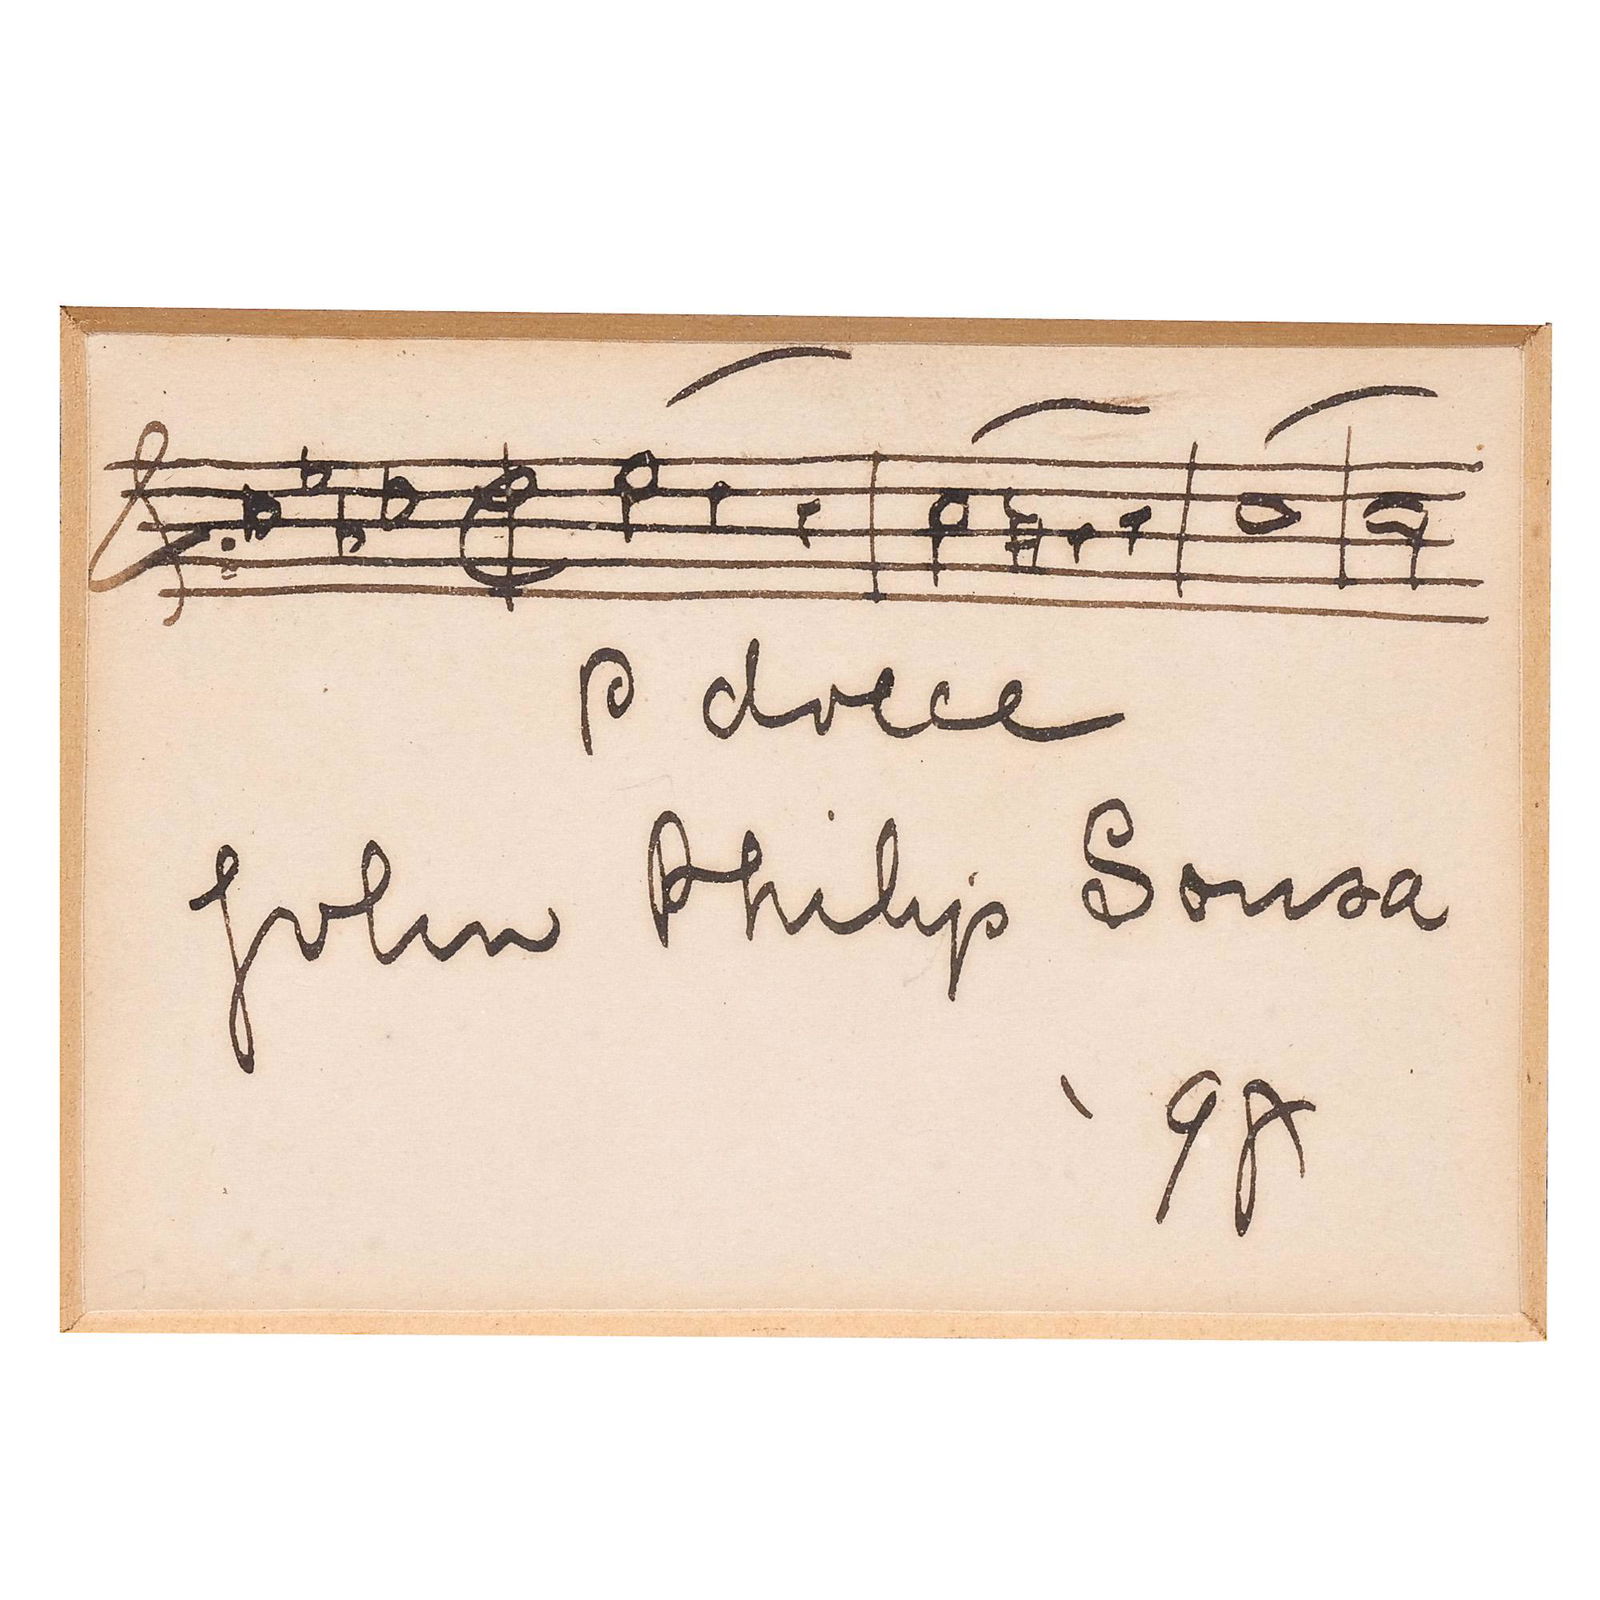 p dolce
John Philip Sousa
'98